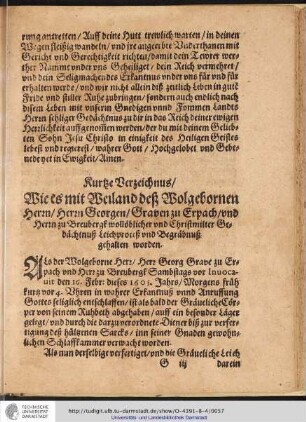 rung antretten / Auff deine Hutt trewlich warten / in deinen
Wegen fleißig wandeln / vnd jre angeerbte Vnderthanen mit
Gericht vnd Gerechtigkeit richten / damit dein Tewrer werther
Namme vnder vns Geheiliget / dein Reich vermehret /
vnd dein Seligmachendes Erkantnus vnder vns für vnd für
erhalten werde / vnd wir nicht allein diß zeitlich Leben in gutt
Fride vnd stiller Ruhe zubringen / sondern auch endlich nach
disem Leben mit vnserm Gnedigen vnd Fommen Landts
Herrn seliger Gedächtnus zu dir in das Reich deiner ewigen
Herrlichkeit auffgenommen werden / der du mit deinem Geliebten
Sohn Jesu Christo in einigkeit des Heiligen Geistes
lebest vnd regierest / wahrer Gott / Hochgelobet vnd Gebenedeyet
in Ewigkeit / Amen.
Kurtze Verzeichnus /
Wie es mit Weiland deß Wolgebornen
Herrn / Herrn Georgen / Graven zu Erpach / vnd
Herrn zu Breubergk wollöblicher vnd Christmilter Gedächtnuß
Leichproceß vnd Begräbnuß
gehalten worden.
Als der Wolgeborne Herr / Herr Georg Grave zu Erpach
vnd Herr zu Breubergk Sambstags vor Invocavit
den 16. Febr: dieses 1605. Jahrs / Morgens früh
kurtz vor 4. Vhren in wahrer Erkantnuß vnnd Anruffung
Gottes seliglich entschlaffen / ist als bald der Gräueliche Cörper
von seinem Ruhbeth abgehaben / auff ein besonder Läger
gelegt / vnd durch die darzu verordnete Diener biß zur verfertigung
deß hältzenen Sarcks / inn seiner Gnaden gewöhnlichen
Schlaffkammer verwacht worden.
Als nun derselbige verfertiget / vnd die Gräueliche Leich
G iij
darein
TECHNISCHE
UNIVERSITÄT
DARMSTADT
http://tudigit.ulb.tu-darmstadt.de/show/O-4391-8-4/0057
Universitäts- und Landesbibliothek Darmstadt